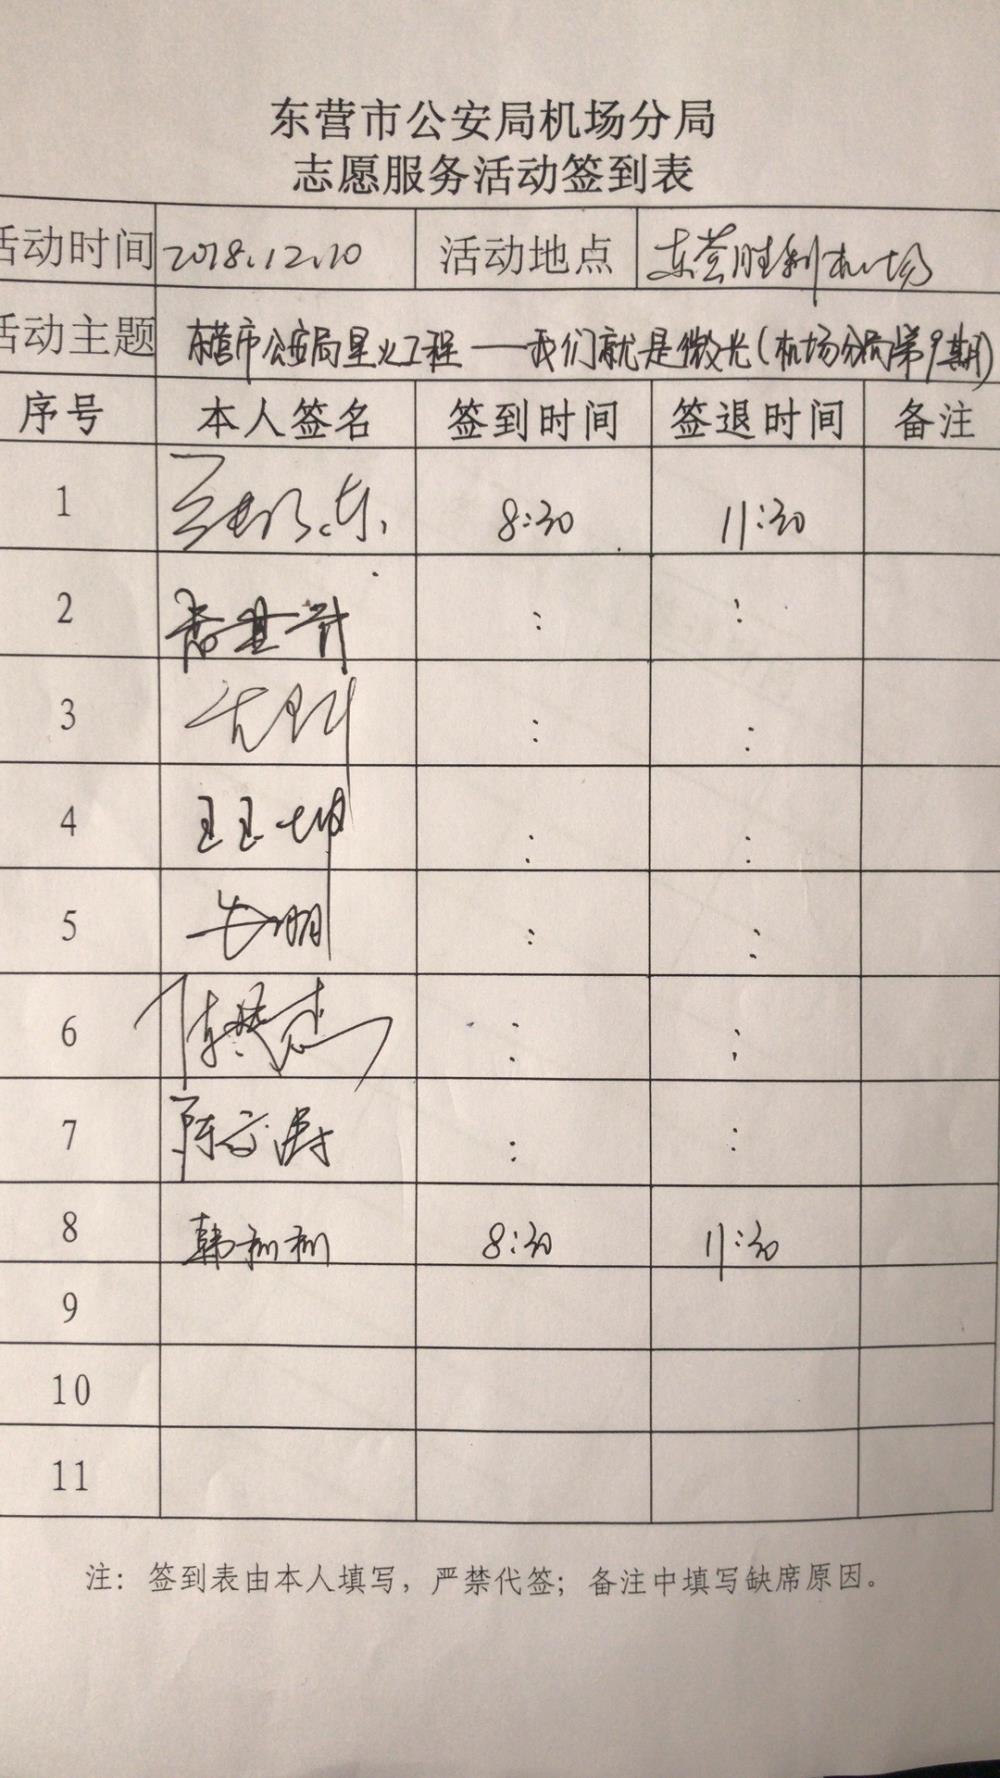 东营市公安局机场分局
志愿服务活动签到表
活动时间 2018.12.10 活动地点 东营胜利机场
活动主题 东营市公安局星火工程——我们就是微光(机场分局第9期)
序号 本人签名 签到时间 签退时间 备注
1 8:30 11:30
2 : :
3 : :
4 : :
5 : :
6 : :
7 陈 : :
8 韩 8:30 11:30
9
10
11
注：签到表由本人填写，严禁代签；备注中填写缺席原因。